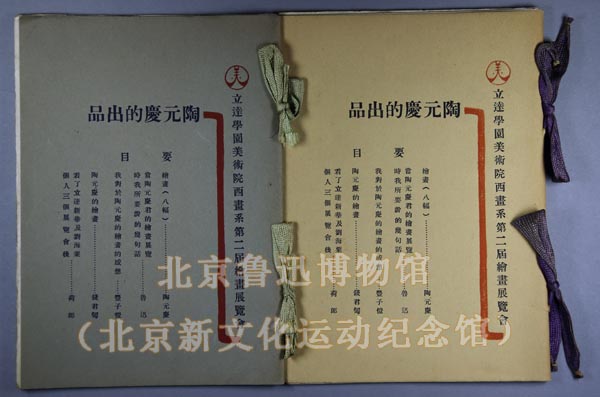 美
立達學園美術院西畫系第二屆繪畫展覽會
陶元慶的出品
要目
繪畫(八幅)……陶元慶
當陶元慶君的繪畫展覽
時我所要說的幾句話……魯迅
我對於陶元慶的繪畫的感想……豐子愷
陶元慶的繪畫……錢君匋
看了立達新華及劉海粟
個人三個展覽會後……荷郎
美
立達學園美術院西畫系第二屆繪畫展覽會
陶元慶的出品
要目
繪畫(八幅)……陶元慶
當陶元慶君的繪畫展覽
時我所要說的幾句話……魯迅
我對於陶元慶的繪畫的感想……豐子愷
陶元慶的繪畫……錢君匋
看了立達新華及劉海粟
個人三個展覽會後……荷郎
北京鲁迅博物馆
(北京新文化运动纪念馆)